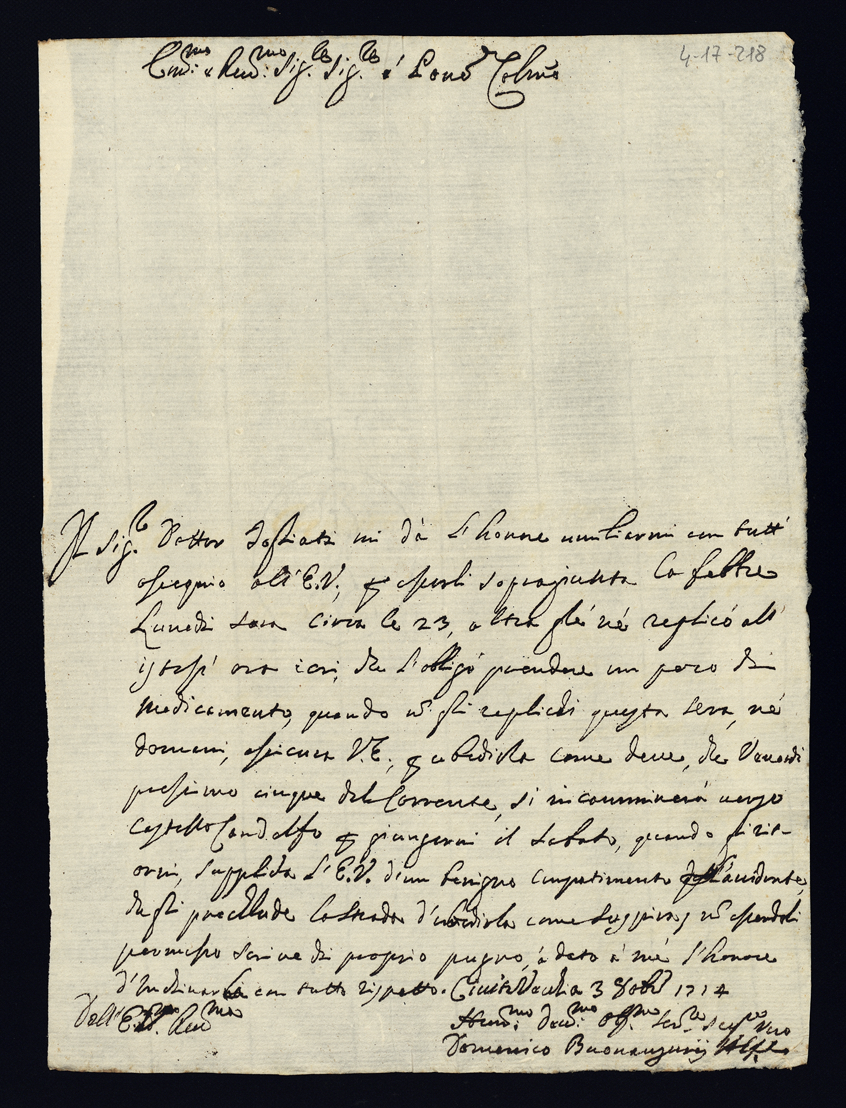 4-17-218
Em.mo e Rev.mo Sig.re Sig.re e Pone Colmo
Il Sig.re Dottor mi dà l'honore umiliarmi con tutt'
ossequio all'E.V., p esserli sopragiunta la febbre
Lunedi sera circa le 23, e ne replicò all'
istess' ora ieri, che l'obligò prendere un poco di
medicamento, quando n gli replichi questa sera, né
domani, assicura V.E., p ubidirla come deve, che Venerdi
prossimo cinque del Corrente, si incamminerà verso
Castello Gandolfo p giungervi il Sabato, quando gli rit-
orni, supplica l'E.V. d'un benigno compatimento l'accidente,
che gli preclude la strada d'ubidirla come sospira, n essendoli
permesso scrivere di proprio pugno, à dato à me l'honore
d'inchinarla con tutto rispetto. Civita Vecchia 3 8bre 1714
Dell'E.V. Rev.ma
Hum.mo Dev.mo Obl.mo Ser.re
Domenico Buonaugurij